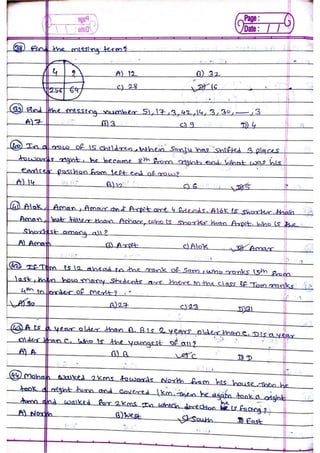 Page :
Date : / /
38) Find the missing term?
4 ?
256 64
A) 12 B) 32
C) 28 D) 16
39) Find the missing number 51, 17, 3, 42, 14, 3, 36, __, 3
A) 7 B) 3 C) 9 D) 4
40) In a row of 15 children, when Sanju has shifted 3 places
towards right, he became 8th from right end. What was his
earlier position from left end of row?
A) 14 B) 12 C) 6 D) 5
41) Alok, Aman, Amar and Arpit are 4 friends. Alok is shorter than
Aman, but taller than Amar, who is shorter than Arpit. who is the
Shortest among all?
A) Aman B) Arpit C) Alok D) Amar
42) If Tom is 12 ahead in the rank of Sam, who ranks 15th from
last, then how many students are there in the class if Tom ranks
4th in order of merit?
A) 30 B) 27 C) 23 D) 31
43) A is a year older than B. B is 2 years older than C. D is a year
older than C. Who is the youngest of all?
A) A B) B C) C D) D
44) Mohan walked 2 kms towards North from his house. Then he
took a right turn and covered 1km. Then he again took a right
turn and walked for 2kms. In which direction he is facing?
A) North B) West C) South D) East